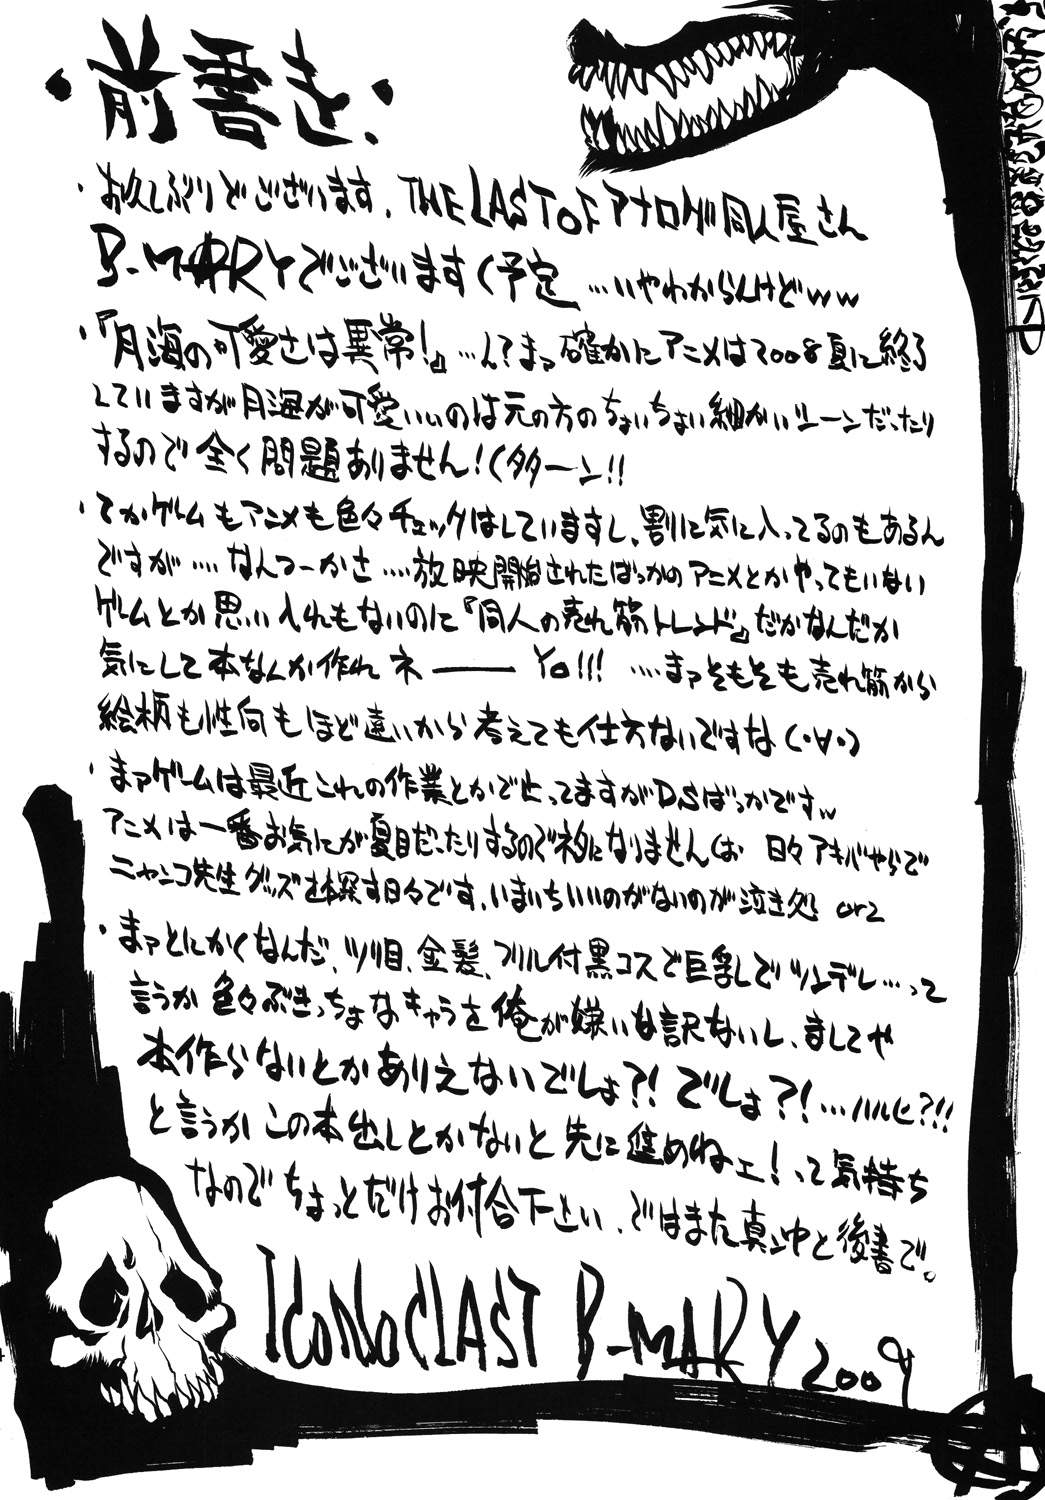 ・前書き・
・お久しぶりでございます、THE LAST OF アナログ同人屋さん
B-MARYでございます(予定 …いやわからんけどww
・『月海の可愛さは異常!』…ん?まァ確かにアニメは2008夏に終了
していますが月海が可愛いいのは元の方のちょいちょい細かいシーンだったり
するので全く問題ありません!(タターン!!
・てかゲームもアニメも色々チェックはしていますし、割に気に入ってるのもあるん
ですが‥‥なんつーかさ‥‥放映開始されたばっかのアニメとかやってもいない
ゲームとか思い入れもないのに『同人の売れ筋トレンド』だかなんだか
気にして本なんか作れネ――Yo!!! ‥‥まァそもそも売れ筋から
絵柄も性向もほど遠いから考えても仕方ないですな(・∀・)
・まァゲームは最近これの作業とかで止ってますがDSばっかですw
アニメは一番お気にが夏目だったりするのでネタになりませんな 日々アキバやらで
ニャンコ先生グッズを探す日々です、いまいちいいのがないのが泣き処 orz
・まァとにかくなんだ、ツリ目、金髪、フリル付黒コスで巨乳でツンデレ…って
言うか色々ぶきっちょなキャラを俺が嫌いな訳ないし、ましてや
本作らないとかありえないでしょ?!でしょ?!…ハルヒ?!!
と言うかこの本出しとかないと先に進めねェ!って気持ち
なのでちょっとだけお付合下さい、ではまた真ン中と後書で。
ICONOCLAST B-MARY 2009